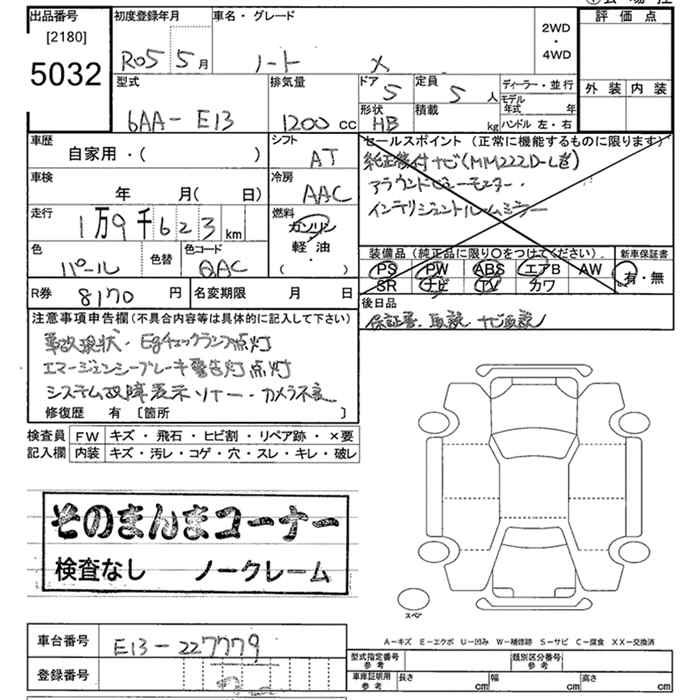 出品番号
[2180]
5032
初度登録年月
R05 5月
車名・グレード
ノート X
2WD
・
4WD
評価点
外装 内装
型式
6AA-E13
排気量
1200cc
ドア
5
形状
HB
定員
5人
積載
kg
ディーラー・並行
モデル年式 年
ハンドル 左・右
車歴
自家用・( )
シフト
AT
車検
年 月( 日)
冷房
AAC
走行
1万9千623km
燃料
ガソリン
軽・油
( )
色
パール
色替
色コード
QAC
R券 8170円
名変期限 月 日
セールスポイント(正常に機能するものに限ります)
純正後付ナビ(MM222D-Lき)
アラウンドビューモニター・
インテリジェントルームミラー
装備品(純正品に限り○をつけてください)
PS PW ABS エアB AW
SR ナビ TV カワ
新車保証書
有・無
後日品
保証書、取説、ナビ取説
注意事項申告欄(不具合内容等は具体的に記入して下さい)
事故現状・Egチェックランプ点灯
エマージェンシーブレーキ警告灯点灯
システム故障表示 ソナー・カメラ不良
修復歴 有 [箇所 ]
検査員 FW キズ・飛石・ヒビ割・リペア跡・×要
記入欄 内装 キズ・汚レ・コゲ・穴・スレ・キレ・破レ
そのまんまコーナー
検査なし ノークレーム
スペア
A-キズ E-エクボ U-凹み W-補修跡 S-サビ C-腐食 XX-交換済
車台番号 E13-227779
登録番号
型式指定番号
参考
類別区分番号
参考
車庫証明用
参考
長さ cm 幅 cm 高さ cm